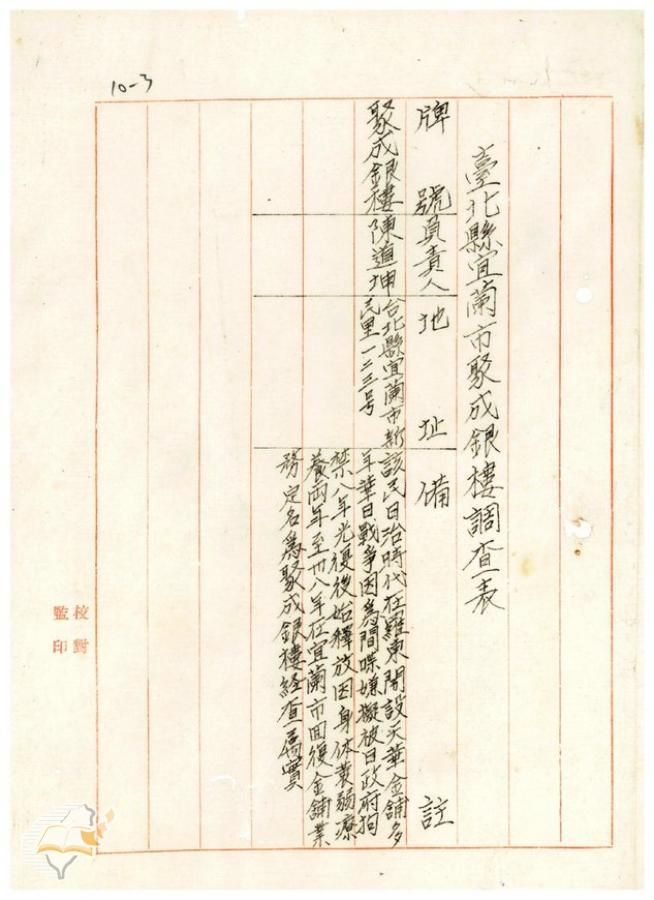 10-3
臺北縣宜蘭市聚成銀樓調查表
牌號
負責人
地址
備註
聚成銀樓
陳道坤
台北縣宜蘭市新
民里一二三号
該民日治時代在羅東開設天華金舖多
年華日戰爭因為間喋嫌擬被日政府拘
禁八年光復後始釋放因身体衰弱療
養兩年至卅八年在宜蘭市回復金舖業
務定名為聚成銀樓経查屬實
校對
監印